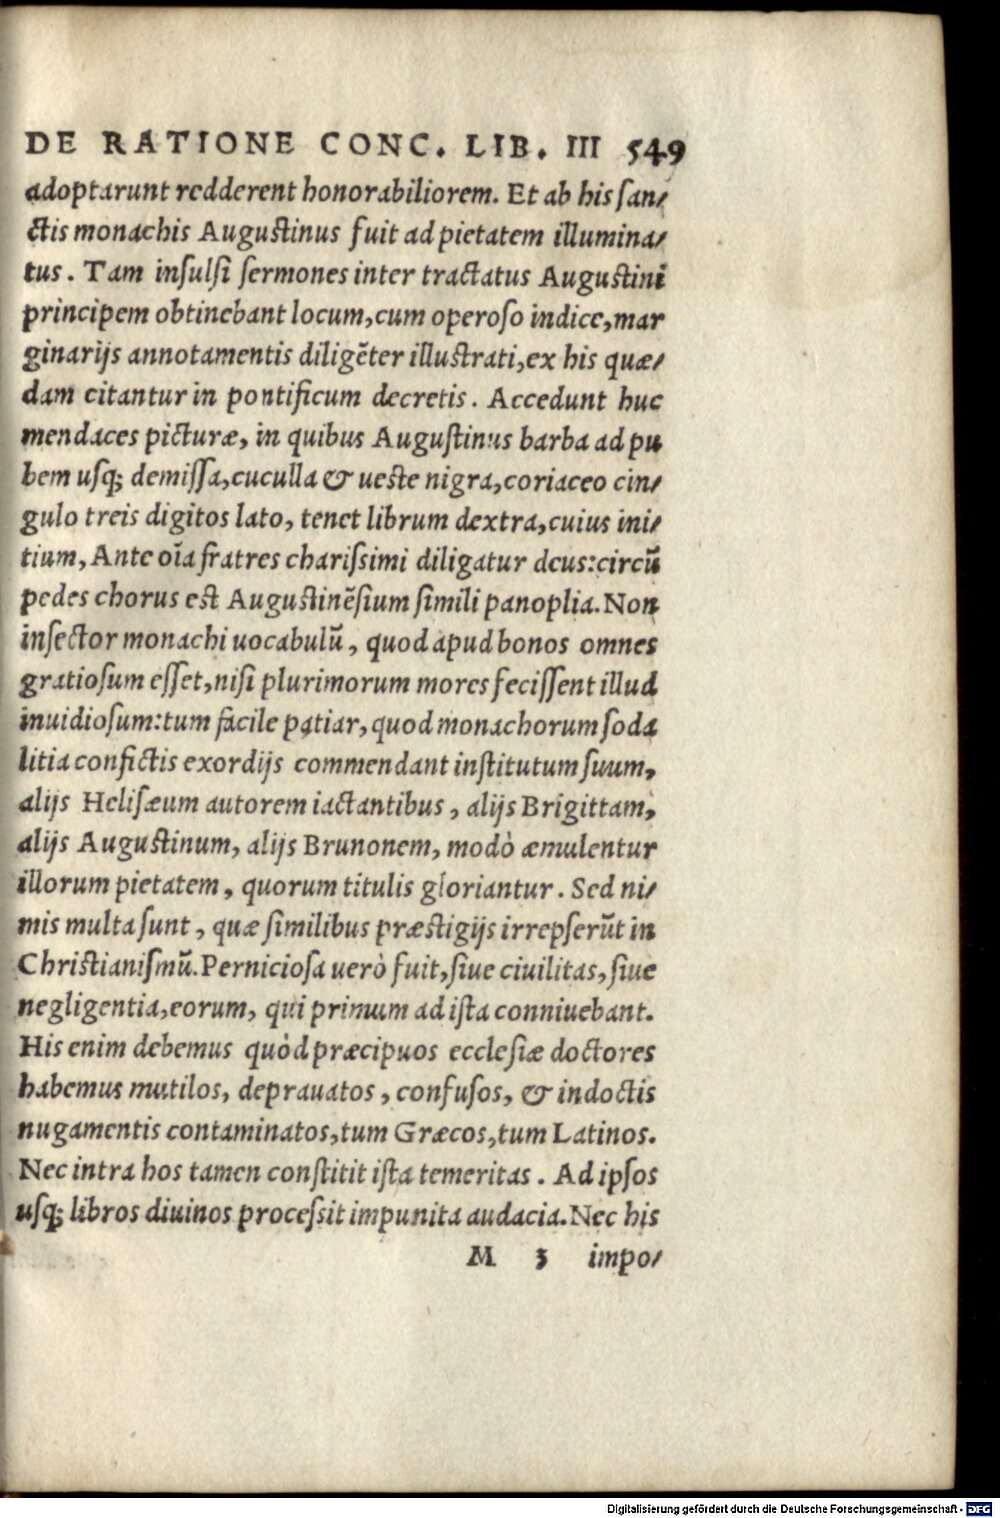 DE RATIONE CONC. LIB. III 549
adoptarunt redderent honorabiliorem. Et ab his ſan⸗
ctis monachis Auguſtinus fuit ad pietatem illumina⸗
tus. Tam inſulſi ſermones inter tractatus Auguſtini
principem obtinebant locum, cum operoſo indice, mar
ginarijs annotamentis diligẽter illuſtrati, ex his quæ⸗
dam citantur in pontificum decretis. Accedunt huc
mendaces picturæ, in quibus Auguſtinus barba ad pu
bem uſq; demiſſa, cuculla & ueſte nigra, coriaceo cin⸗
gulo treis digitos lato, tenet librum dextra, cuius ini⸗
tium, Ante oĩa fratres chariſsimi diligatur deus: circũ
pedes chorus eſt Auguſtinẽſium ſimili panoplia. Non
inſector monachi uocabulũ, quod apud bonos omnes
gratioſum eſſet, niſi plurimorum mores feciſſent illud
inuidioſum: tum facile patiar, quod monachorum ſoda
litia confictis exordijs commendant inſtitutum ſuum,
alijs Heliſæum autorem iactantibus, alijs Brigittam,
alijs Auguſtinum, alijs Brunonem, modò æmulentur
illorum pietatem, quorum titulis gloriantur. Sed ni⸗
mis multa ſunt, quæ ſimilibus præſtigijs irrepſerũt in
Chriſtianiſmũ. Pernicioſa uerò fuit, ſiue ciuilitas, ſiue
negligentia, eorum, qui primum ad iſta conniuebant.
His enim debemus quòd præcipuos eccleſiæ doctores
habemus mutilos, deprauatos, confuſos, & indoctis
nugamentis contaminatos, tum Græcos, tum Latinos.
Nec intra hos tamen conſtitit iſta temeritas. Ad ipſos
uſq; libros diuinos proceſsit impunita audacia. Nec his
M 3 impo⸗
Digitalisierung gefördert durch die Deutsche Forschungsgemeinschaft - DFG